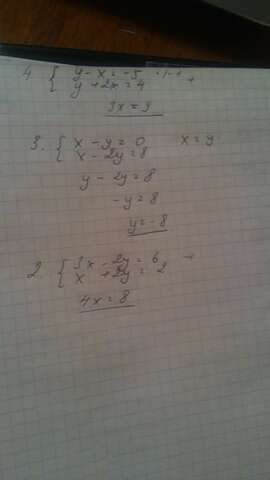 4. { y - x = -5 · |-1 +
y + 2x = 4
3x = 9
3. { x - y = 0 x = y
x - 2y = 8
y - 2y = 8
-y = 8
y = -8
2. { 3x - 2y = 6 +
x + 2y = 2
4x = 8